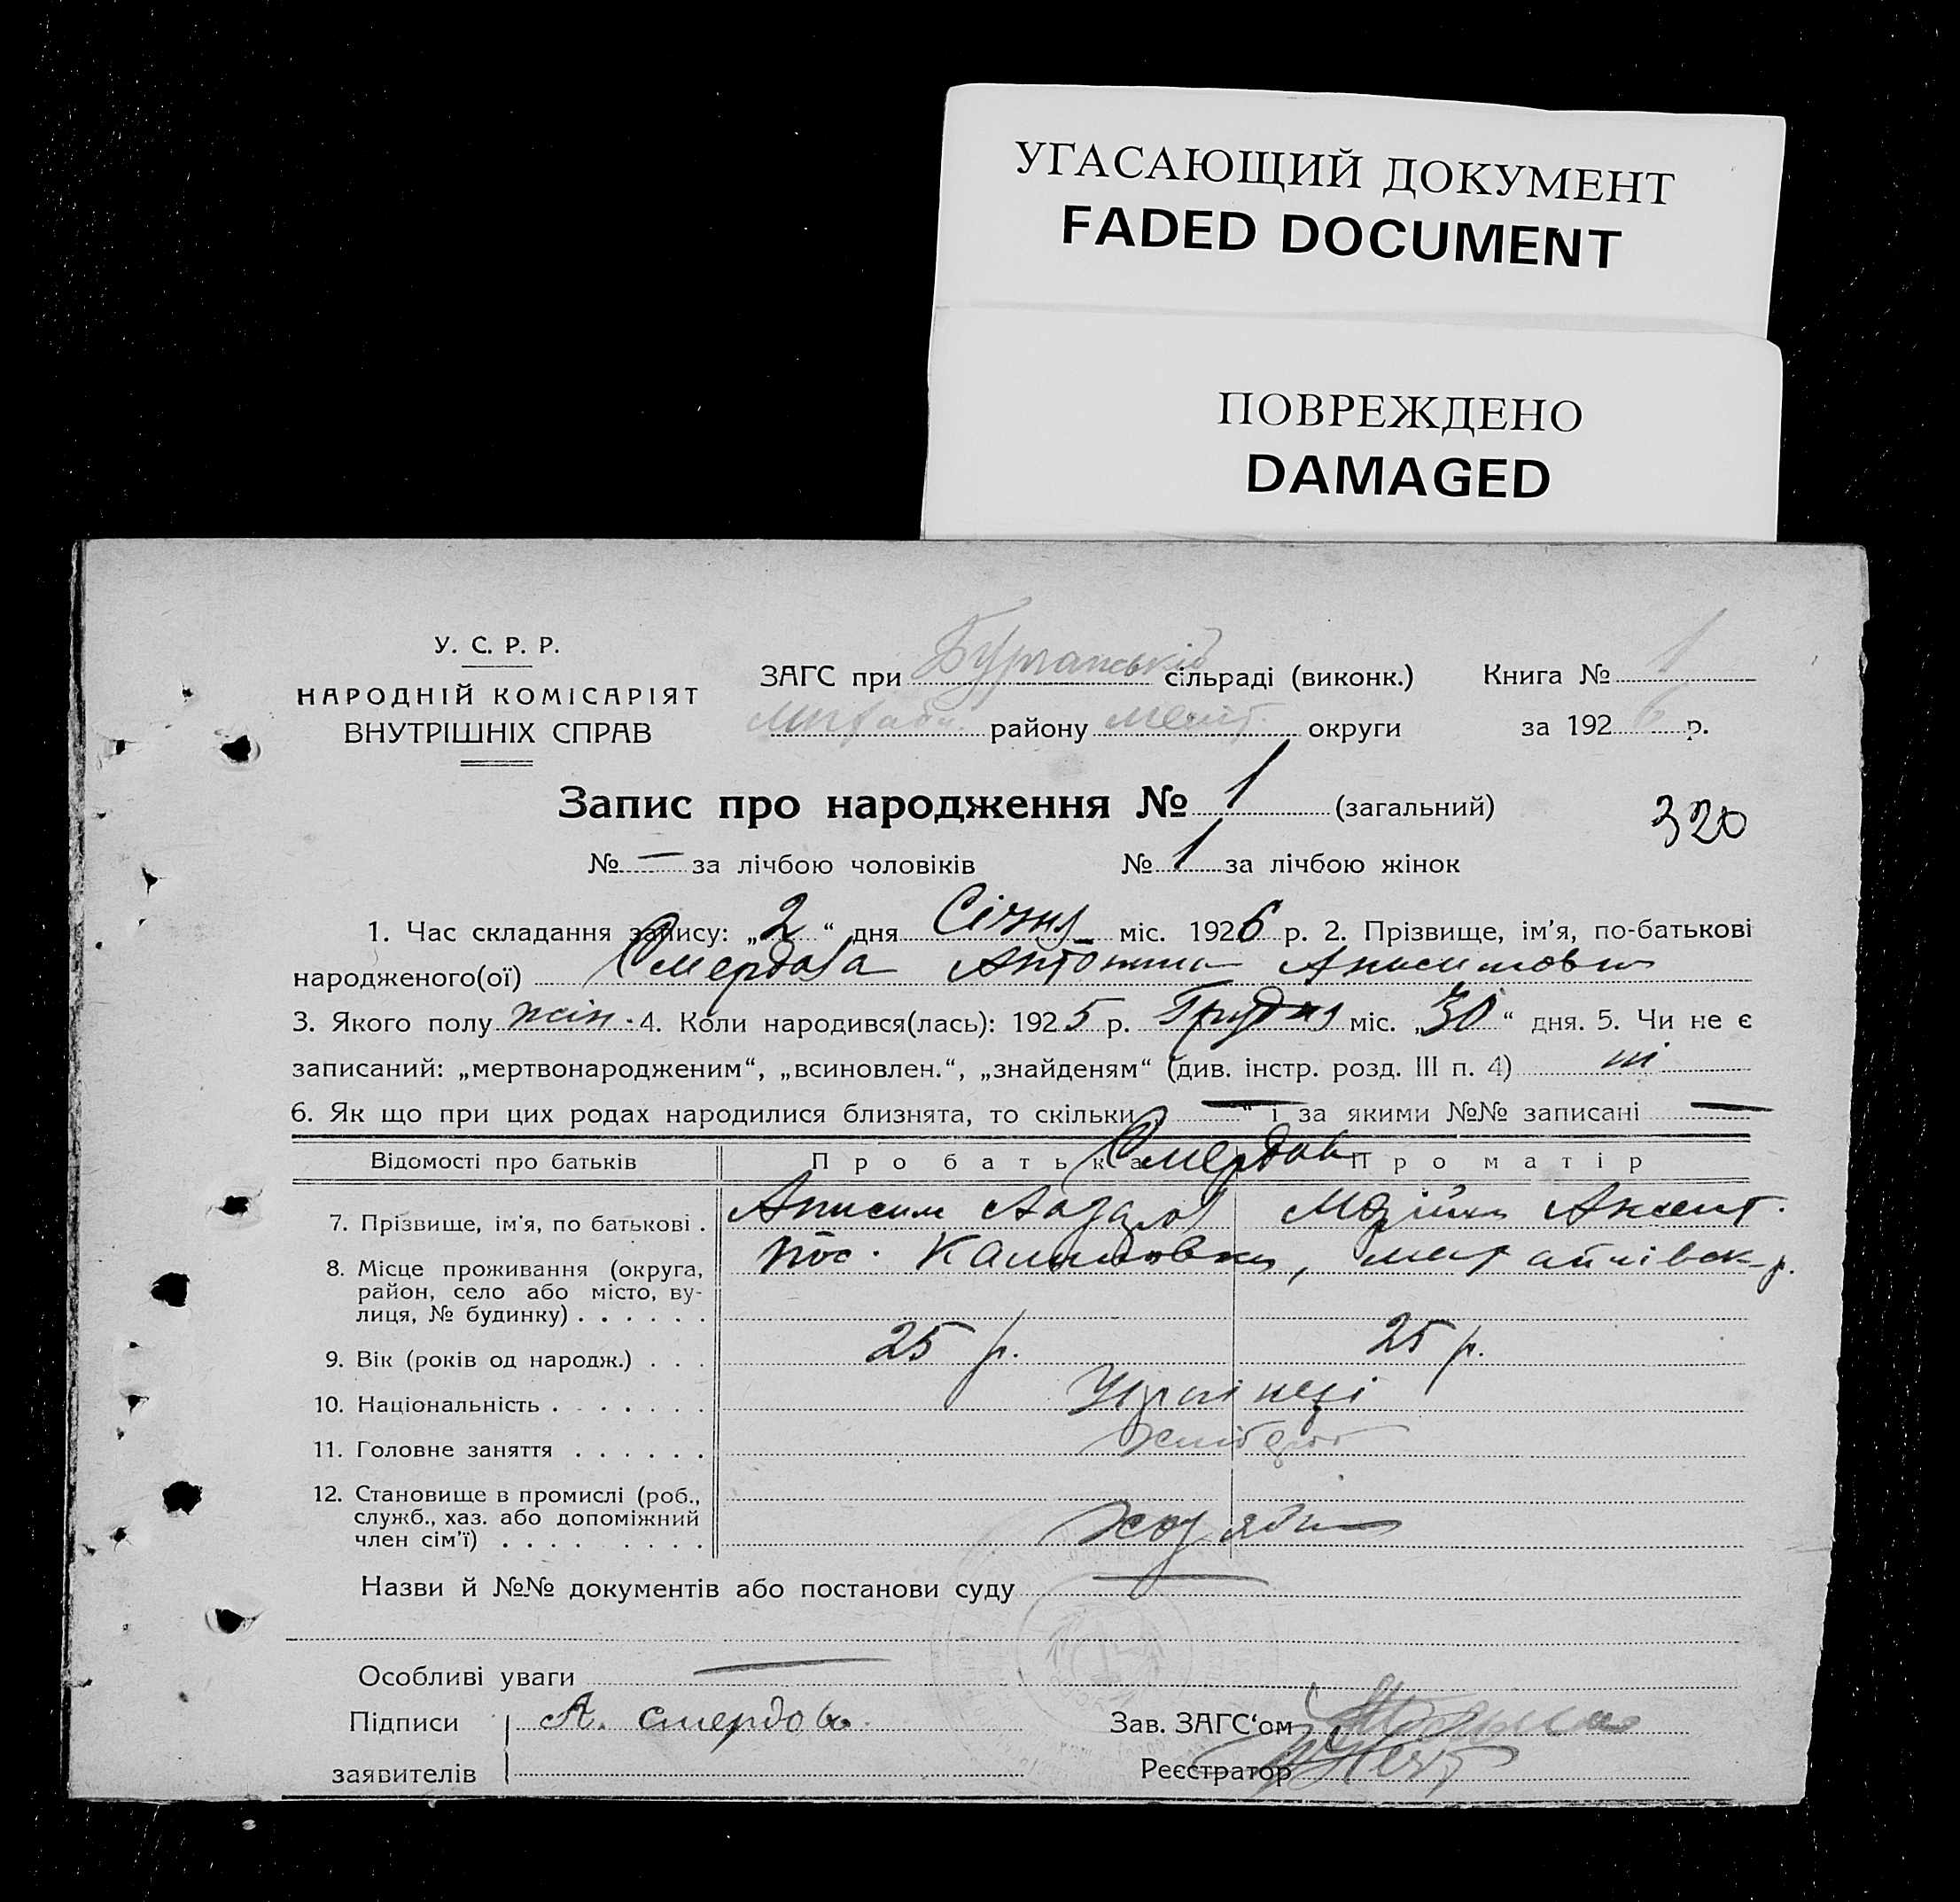 УГАСАЮЩИЙ ДОКУМЕНТ
FADED DOCUMENT
ПОВРЕЖДЕНО
DAMAGED
У. С. Р. Р.
НАРОДНІЙ КОМІСАРІЯТ
ВНУТРІШНІХ СПРАВ
ЗАГС при сільраді (виконк.)
району Меліт. округи
Книга № 1
за 1926 р.
Запис про народження № 1 (загальний)
320
№ — за лічбою чоловіків № 1 за лічбою жінок
1. Час складання запису: „2“ дня Січня міс. 1926 р. 2. Прізвище, ім’я, по-батькові
народженого(ої) Смердова Антонина Анисимовна
3. Якого полу жін. 4. Коли народився(лась): 1925 р. Грудня міс. „30“ дня. 5. Чи не є
записаний: „мертвонародженим“, „всиновлен.“, „знайденям“ (див. інстр. розд. III п. 4) ні
6. Як що при цих родах народилися близнята, то скільки — “ і за якими №№ записані —
Відомості про батьків Про батька Про матір
Смердов
7. Прізвище, ім’я, по батькові . Анисим Аксент.
8. Місце проживання (округа, пос.
район, село або місто, ву-
лиця, № будинку) . . . . . .
9. Вік (років од народж.) . . . 25 р. 25 р.
10. Національність . . . . . . . Українці
11. Головне заняття . . . . . . Хлібороб
12. Становище в промислі (роб.,
служб., хаз. або допоміжний
член сім’ї) . . . . . . . . .
Назви й №№ документів або постанови суду —
Особливі уваги —
Підписи А. Смердов
заявителів
Зав. ЗАГС‘ом
Реєстратор